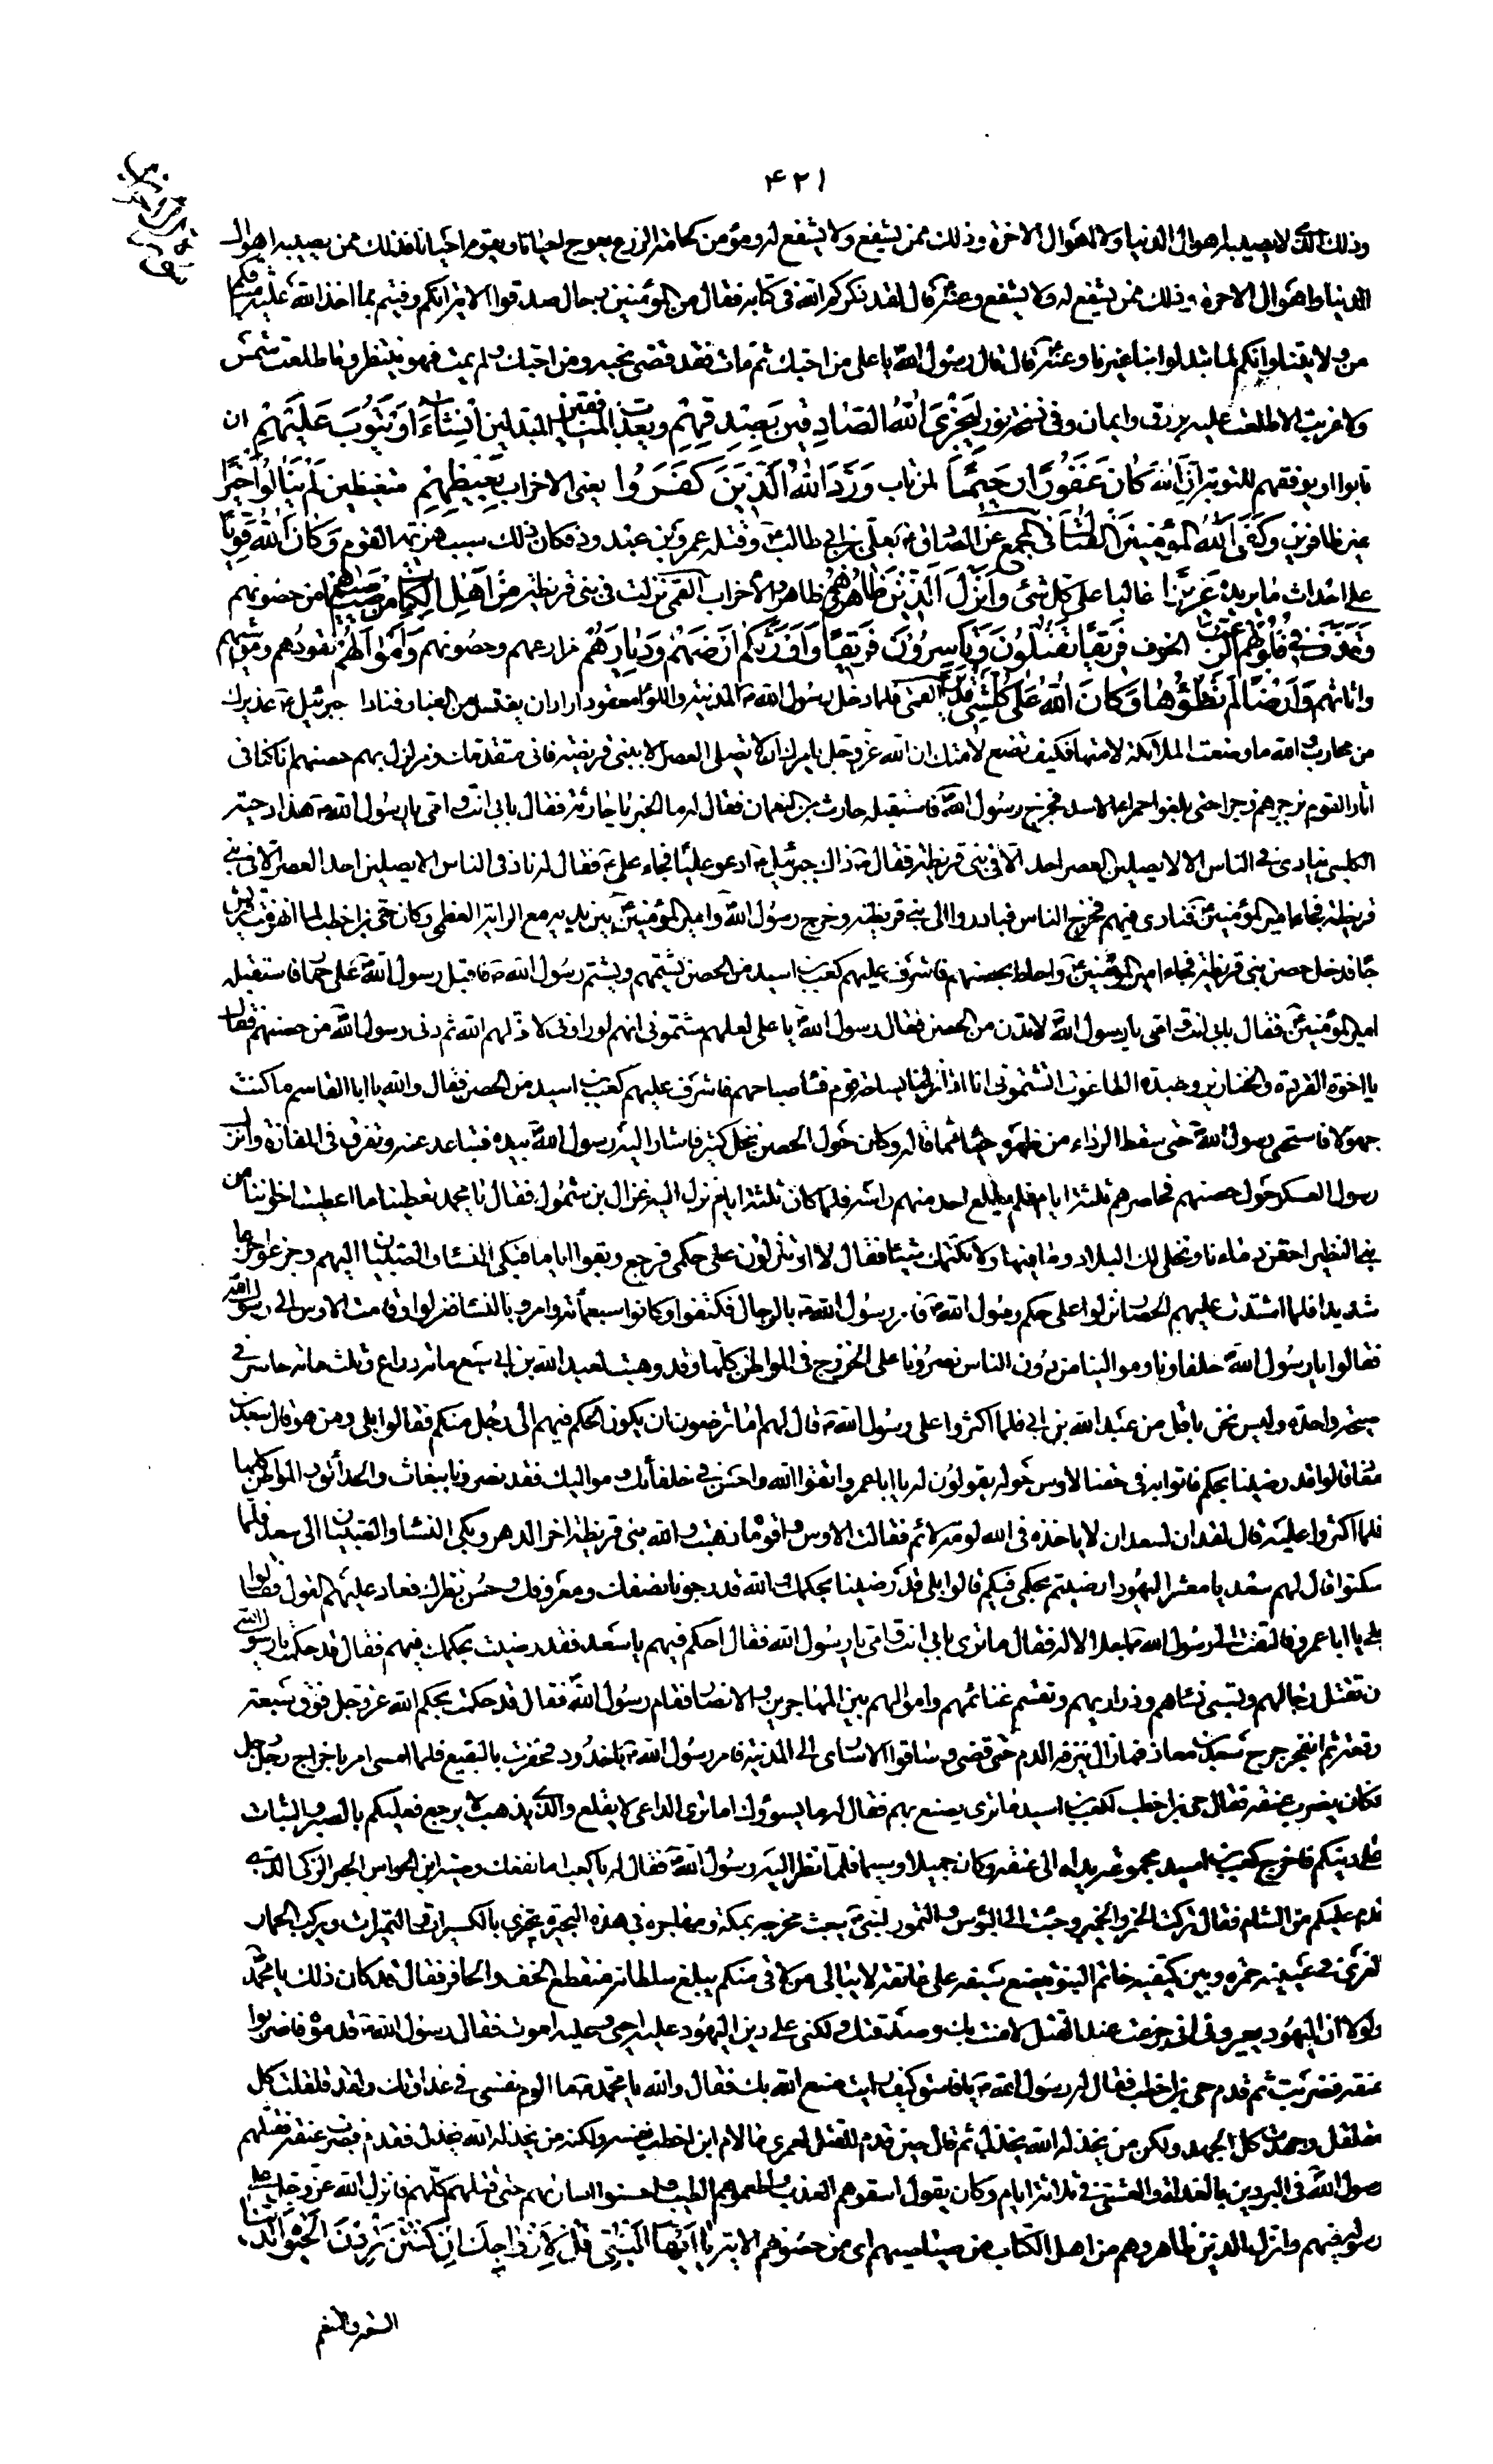 ۴۲۱
وذلك الذي لا يصيبه اهوال الدنيا ولا اهوال الاخرة وذلك ممن يشفع ولا يشفع له ومؤمن كخامة الزرع يعوج احيانا ويقوم احيانا فذلك ممن يصيبه اهوال
الدنيا واهوال الاخرة وذلك ممن يشفع له ولا يشفع وعنه قال لقد ذكركم الله في كتابه فقال من المؤمنين رجال صدقوا الاية انكم وفيتم بما اخذ الله عليه ميثاقكم
من ولايتنا وانكم لم تبدلوا بنا غيرنا وعنه قال قال رسول الله يا علي من احبك ثم مات فقد قضى نحبه ومن احبك ولم يمت فهو ينتظر وما طلعت شمس
ولا غربت الا طلعت عليه برزق وايمان وفي نسخة نور لِيَجْزِيَ اللهُ الصَّادِقِينَ بِصِدْقِهِمْ ويعذب المنافقين المبدلين اِنْ شَاءَ اَوْ يَتُوبَ عَلَيْهِمْ ان
تابوا او يوفقهم للتوبة اِنَّ اللهَ كَانَ غَفُورًا رَحِيمًا لمن تاب وَرَدَّ اللهُ الَّذِينَ كَفَرُوا يعني الاحزاب بِغَيْظِهِمْ متغيظين لَمْ يَنَالُوا خَيْرًا
غير ظافرين وَكَفَى اللهُ الْمُؤْمِنِينَ الْقِتَالَ في المجمع عن الصادق ع بعلي بن ابي طالب ع وقتله عمرو بن عبد ود فكان ذلك سبب هزيمة القوم وَكَانَ اللهُ قَوِيًّا
على احداث ما يريده عَزِيزًا غالبا على كل شئ وَاَنْزَلَ الَّذِينَ ظَاهَرُوهُمْ ظاهروا الاحزاب القمي نزلت في بني قريظة مِنْ اَهْلِ الْكِتَابِ مِنْ صَيَاصِيهِمْ من حصونهم
وَقَذَفَ فِي قُلُوبِهِمُ الرُّعْبَ الخوف فَرِيقًا تَقْتُلُونَ وَتَاْسِرُونَ فَرِيقًا وَاَوْرَثَكُمْ اَرْضَهُمْ وَدِيَارَهُمْ مزارعهم وحصونهم وَاَمْوَالَهُمْ نقودهم ومواشيهم
واثاثهم وَاَرْضًا لَمْ تَطَئُوهَا وَكَانَ اللهُ عَلَى كُلِّ شَيْءٍ قَدِيرًا القمي فلما دخل رسول الله ص المدينة واللواء معقود اراد ان يغتسل من الغبار فناداه جبرئيل ع عذيرك
من محارب والله ما وضعت الملائكة لامتها فكيف تضع لامتك ان الله عز وجل يامرك ان لا تصلي العصر الا ببني قريظة فاني متقدمك ومزلزل بهم حصنهم انا كنا في
اثار القوم نزجرهم زجرا حتى بلغوا حمراء الاسد فخرج رسول الله فاستقبله حارثة بن النعمان فقال له ما الخبر يا حارثة فقال بابي انت وامي يا رسول الله ص هذا دحية
الكلبي ينادي في الناس الا لا يصلين العصر احد الا في بني قريظة فقال ص ذاك جبرئيل ع ادعو عليا فجاء علي ع فقال له ناد في الناس لا يصلين احد العصر الا في بني
قريظة فجاء امير المؤمنين ع فنادى فيهم فخرج الناس فبادروا الى بني قريظة وخرج رسول الله ص وامير المؤمنين ع بين يديه مع الراية العظمى وكان حي بن اخطب لما انهزمت قريش
جاء فدخل حصن بني قريظة فجاء امير المؤمنين ع واحاط بحصنهم فاشرف عليهم كعب بن اسيد من الحصن يشتمهم ويشتم رسول الله ص فاقبل رسول الله ص على حمار فاستقبله
امير المؤمنين ع فقال بابي انت وامي يا رسول الله لا تدن من الحصن فقال رسول الله يا علي لعلهم شتموني انهم لو راوني لاذلهم الله ثم دنى رسول الله من حصنهم فقال
يا اخوة القردة والخنازير وعبدة الطاغوت اتشتموني انا اذا نزلنا بساحة قوم فساء صباحهم فاشرف عليهم كعب بن اسيد من الحصن فقال والله يا ابا القاسم ما كنت
جهولا فاستحى رسول الله ص حتى سقط الرداء من ظهره حياء مما قاله وكان حول الحصن نخل كثير فاشار اليه رسول الله ص بيده فتباعد عنه وتفرق في المفازة وانزل
رسول العسكر حول حصنهم فحاصرهم ثلثة ايام فلم يطلع احد منهم راسه فلما كان ثلثة ايام نزل اليه غزال بن شمول فقال يا محمد تعطينا ما اعطيت اخواننا من
بني النضير احقن دماءنا ونخلي لك البلاد وما فيها ولا نكتمك شيئا فقال لا او تنزلون على حكمي فرجع وبقوا اياما فبكى النساء والصبيان اليهم وجزعوا جزعا
شديدا فلما اشتدت عليهم الحصار نزلوا على حكم رسول الله ص فامر رسول الله ص بالرجال فكتفوا وكانوا سبعمائة وامر بالنساء فعزلوا وقامت الاوس الى رسول الله
فقالوا يا رسول الله ص حلفاؤنا وموالينا من دون الناس نصرونا على الخزرج في المواطن كلها وقد وهبت لعبد الله بن ابي سبعمائة دراع وثلثمائة حاسر في
صبيحة واحدة وليس نحن باقل من عبد الله بن ابي فلما اكثروا على رسول الله ص قال لهم اما ترضون ان يكون الحكم فيهم الى رجل منكم فقالوا بلى ومن هو قال سعد بن
معاذ قالوا قد رضينا بحكمه فاتوا به في محفة والاوس حوله يقولون له يا ابا عمرو اتق الله واحسن في حلفائك ومواليك فقد نصرونا ببغاث والحدائق والمواطن كلها
فلما اكثروا عليه قال لقد ان لسعد ان لا ياخذه في الله لومة لائم فقالت الاوس واقوماه ذهبت والله بني قريظة اخر الدهر وبكى النساء والصبيان الى سعد فلما
سكتوا قال لهم سعد يا معشر اليهود ارضيتم بحكمي فيكم قالوا بلى قد رضينا بحكمك والله قد رجونا نصفك ومعروفك وحسن نظرك فعاد عليهم القول فقالوا
بلى يا ابا عمرو فالتفت الى رسول الله ص اجلالا له فقال ما ترى بابي انت وامي يا رسول الله فقال احكم فيهم يا سعد فقد رضيت بحكمك فيهم فقال قد حكمت يا رسول الله
ان تقتل رجالهم وتسبي نساءهم وذراريهم وتقسم غنائمهم واموالهم بين المهاجرين والانصار فقام رسول الله ص فقال قد حكمت بحكم الله عز وجل فوق سبعة
رقعة ثم انفجر جرح سعد بن معاذ فما زال ينزفه الدم حتى قضى وساقوا الاسارى الى المدينة فامر رسول الله ص باخدود فحفرت بالبقيع فلما امسى امر باخراج رجل رجل
فكان يضرب عنقه فقال حي بن اخطب لكعب بن اسيد ما ترى يصنع بهم فقال له ما يسؤك اما ترى الداعي لا يقلع والذي يذهب لا يرجع فعليكم بالصبر والثبات
على دينكم فاخرج كعب بن اسيد مجموعة يداه الى عنقه وكان جميلا وسيما فلما نظر اليه رسول الله ص فقال له يا كعب اما نفعك وصية ابن الحواس الحبر الزكي الذي
قدم عليكم من الشام فقال تركت الخمر والخمير وجئت الى البؤس والتمور لنبي يبعث مخرجه بمكة ومهاجره في هذه البحيرة يجتزي بالكسيرات والتميرات ويركب الحمار
العري في عينيه حمرة وبين كتفيه خاتم النبوة يضع سيفه على عاتقه لا يبالي من لاقى منكم يبلغ سلطانه منقطع الخف والحافر فقال قد كان ذلك يا محمد
ولولا ان اليهود يعيروني اني جزعت عند القتل لامنت بك وصدقتك ولكني على دين اليهود عليه احيى وعليه اموت فقال رسول الله ص قدموه فاضربوا
عنقه فضربت ثم قدم حي بن اخطب فقال له رسول الله ص يا فاسق كيف رايت صنع الله بك فقال والله يا محمد ص ما الوم نفسي في عداوتك ولقد قلقلت كل
مقلقل وجهدت كل الجهد ولكن من يخذله الله يخذل ثم قال حين قدم للقتل لعمري ما لام ابن اخطب نفسه ولكنه من يخذله الله يخذل فقدم وضرب عنقه فقتلهم
رسول الله ص في البردين بالغداة والعشي في ثلاثة ايام وكان يقول اسقوهم العذب واطعموهم الطيب واحسنوا اسارهم حتى قتلهم كلهم فانزل الله عز وجل على
رسوله فيهم وانزل الذين ظاهروهم من اهل الكتاب من صياصيهم اي من حصونهم الاية يَا اَيُّهَا النَّبِيُّ قُلْ لِاَزْوَاجِكَ اِنْ كُنْتُنَّ تُرِدْنَ الْحَيٰوةَ الدُّنْيَا
السعة والتنعم